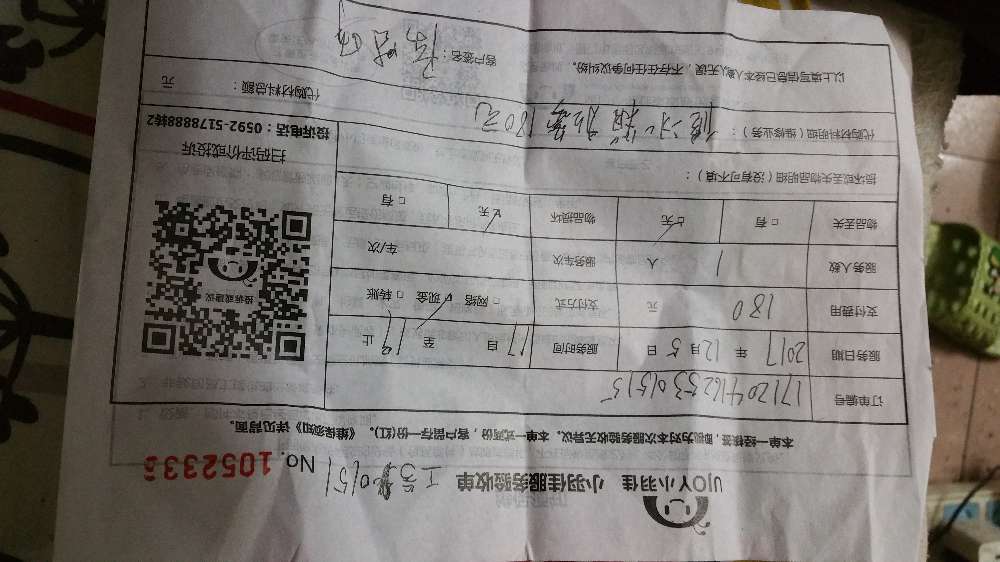 UJOY小羽佳 小羽佳服务验收单 工号 0151 No. 1052333
本单一经核签，即视为对本次服务验收无异议。本单一式两份，客户留存一份(红)。《维保须知》详见背面。
订单编号 1712041625301515
服务日期 2017 年 12月 5 日 服务时间 自 17 至 19 止
支付费用 180 元 支付方式 □ 网络 ☑ 现金 □ 转账
服务人数 1 人 服务车次 车/次
物品丢失 □ 有 ☑ 无 物品损坏 ☑ 无 □ 有
损坏或丢失物品明细（没有可不填）：
代购材料明细（维修业务）： 180元
代购材料总额： 元
以上填写信息已经本人确认无误，不存在任何争议纠纷。 客户签名：
投诉或建议
扫码评价或投诉
投诉电话：0592-5178888转2